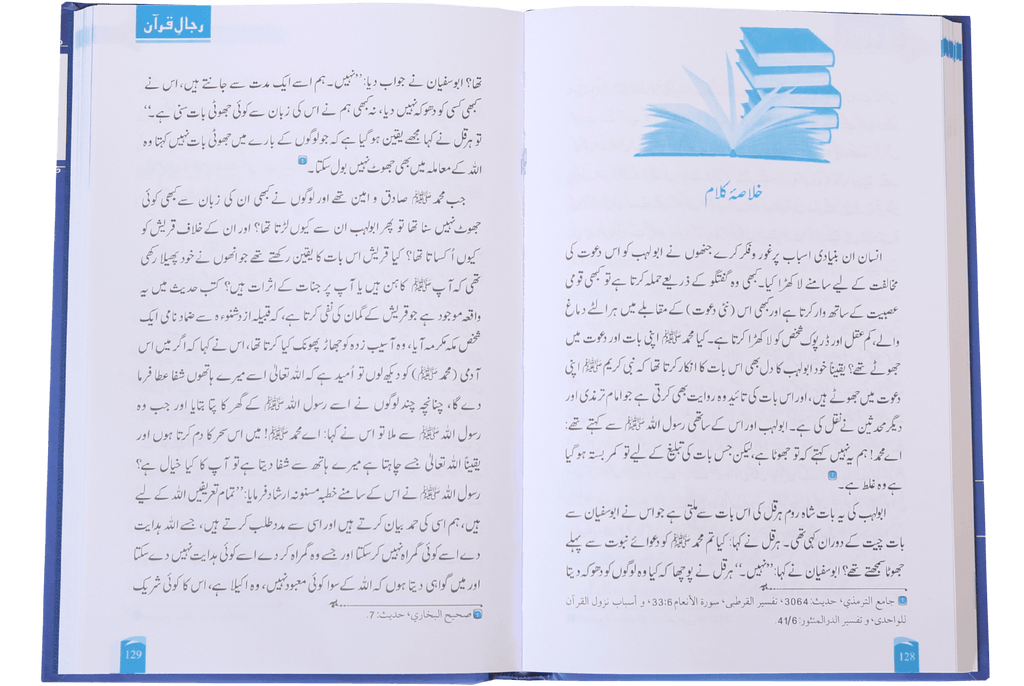 خلاصۂ کلام
انسان ان بنیادی اسباب پر غور و فکر کرے جنھوں نے ابولہب کو اس دعوت کی
مخالفت کے لیے سامنے لا کھڑا کیا۔ کبھی وہ گفتگو کے ذریعے حملہ کرتا ہے تو کبھی قومی
عصبیت کے ساتھ وار کرتا ہے اور کبھی اس (نئی دعوت) کے مقابلے میں ہر الٹے دماغ
والے، کم عقل اور ڈرپوک شخص کو لا کھڑا کرتا ہے۔ کیا محمد ﷺ اپنی بات اور دعوت میں
جھوٹے تھے؟ یقیناً خود ابولہب کا دل بھی اس بات کا انکار کرتا تھا کہ نبی کریم ﷺ اپنی
دعوت میں جھوٹے ہیں، اور اس بات کی تائید وہ روایت بھی کرتی ہے جو امام ترمذی اور
دیگر محدثین نے نقل کی ہے۔ ابولہب اور اس کے ساتھی رسول اللہ ﷺ سے کہتے تھے:
اے محمد! ہم یہ نہیں کہتے کہ تو جھوٹا ہے، لیکن جس بات کی تبلیغ کے لیے تو کمر بستہ ہو گیا
ہے وہ غلط ہے۔
ابولہب کی یہ بات شاہ روم ہرقل کی اس بات سے ملتی ہے جو اس نے ابوسفیان سے
بات چیت کے دوران کہی تھی۔ ہرقل نے کہا: کیا تم محمد ﷺ کو دعوائے نبوت سے پہلے
جھوٹا سمجھتے تھے؟ ابوسفیان نے کہا: ’’نہیں۔‘‘ ہرقل نے پوچھا کہ کیا وہ لوگوں کو دھوکہ دیتا
جامع الترمذي، حديث: 3064، تفسير القرطبي، سورة الأنعام 33:6، و أسباب نزول القرآن
للواحدي، و تفسير الدرالمنثور: 41/6.
128
رجالِ قرآن
تھا؟ ابوسفیان نے جواب دیا: ’’نہیں۔ ہم اسے ایک مدت سے جانتے ہیں، اس نے
کبھی کسی کو دھوکہ نہیں دیا، نہ کبھی ہم نے اس کی زبان سے کوئی جھوٹی بات سنی ہے۔‘‘
تو ہرقل نے کہا مجھے یقین ہو گیا ہے کہ جو لوگوں کے بارے میں جھوٹی بات نہیں کہتا وہ
اللہ کے معاملہ میں بھی جھوٹ نہیں بول سکتا۔
جب محمد ﷺ صادق و امین تھے اور لوگوں نے کبھی ان کی زبان سے کبھی کوئی
جھوٹ نہیں سنا تھا تو پھر ابولہب ان سے کیوں لڑتا تھا؟ اور ان کے خلاف قریش کو
کیوں اُکساتا تھا؟ کیا قریش اس بات کا یقین رکھتے تھے جو انھوں نے خود پھیلا رکھی
تھی کہ آپ ﷺ کاہن ہیں یا آپ پر جنات کے اثرات ہیں؟ کتب حدیث میں یہ
واقعہ موجود ہے جو قریش کے گمان کی نفی کرتا ہے، کہ قبیلہ ازدشنوءہ سے ضماد نامی ایک
شخص مکہ مکرمہ آیا، وہ آسیب زدہ کو جھاڑ پھونک کیا کرتا تھا، اس نے کہا کہ اگر میں اس
آدمی (محمد ﷺ) کو دیکھ لوں تو اُمید ہے کہ اللہ تعالیٰ اسے میرے ہاتھوں شفا عطا فرما
دے گا، چنانچہ چند لوگوں نے اسے رسول اللہ ﷺ کے گھر کا پتا بتایا اور جب وہ
رسول اللہ ﷺ سے ملا تو اس نے کہا: اے محمد ﷺ! میں اس سحر کا دم کرتا ہوں اور
یقیناً اللہ تعالیٰ جسے چاہتا ہے میرے ہاتھ سے شفا دیتا ہے تو آپ کا کیا خیال ہے؟
رسول اللہ ﷺ نے اس کے سامنے خطبہ مسنونہ ارشاد فرمایا: ’’تمام تعریفیں اللہ کے لیے
ہیں، ہم اسی کی حمد بیان کرتے ہیں اور اسی سے مدد طلب کرتے ہیں، جسے اللہ ہدایت
دے اسے کوئی گمراہ نہیں کر سکتا اور جسے وہ گمراہ کر دے اسے کوئی ہدایت نہیں دے سکتا
اور میں گواہی دیتا ہوں کہ اللہ کے سوا کوئی معبود نہیں، وہ اکیلا ہے، اس کا کوئی شریک
صحيح البخاري، حديث: 7.
129